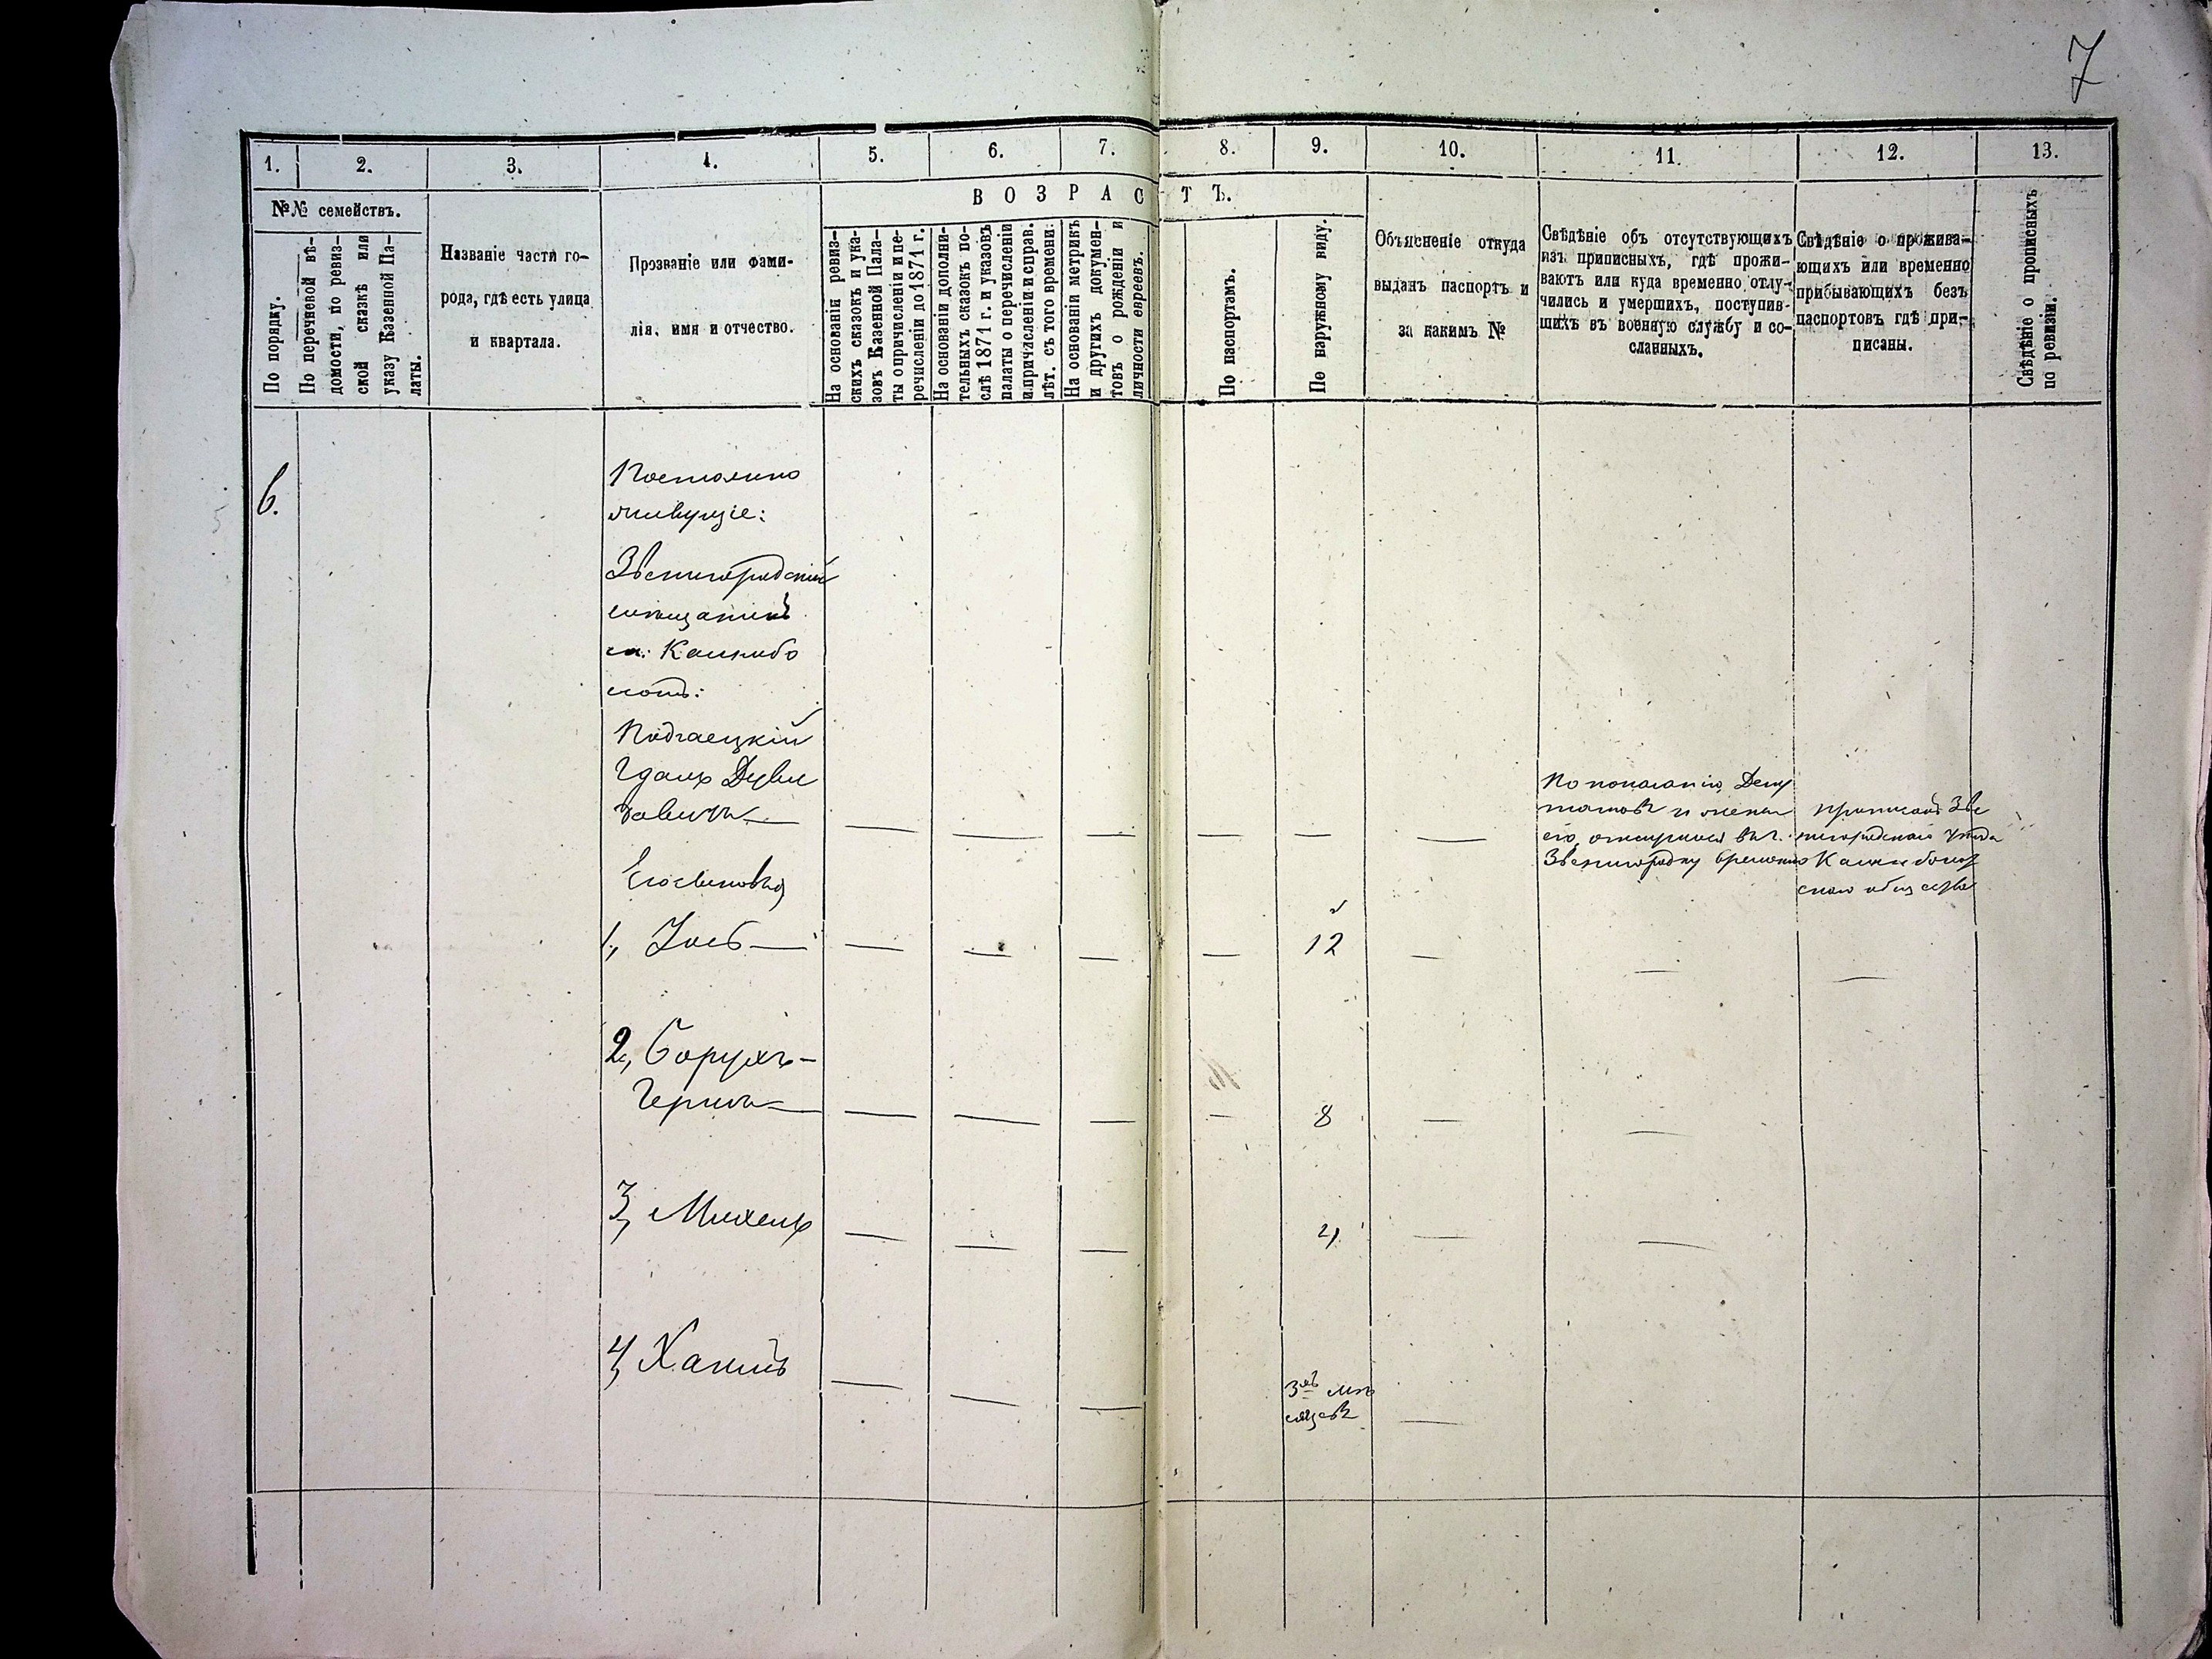 7
1.
2.
3.
4.
5.
6.
7.
8.
9.
10.
11.
12.
13.
№№ семействъ.
ВОЗРАСТЪ.
По порядку.
По перечневой вѣ-
домости, по ревиз-
ской сказкѣ или
указу Казенной Па-
латы.
Названіе части го-
рода, гдѣ есть улица
и квартала.
Прозваніе или фами-
лія, имя и отчество.
На основаніи ревиз-
скихъ сказокъ и ука-
зовъ Казенной Пала-
ты о причисленіи и пе-
речисленіи до 1871 г.
На основаніи дополни-
тельныхъ сказокъ по-
слѣ 1871 г. и указовъ
палаты о перечисленіи
и причисленіи и справ.
лѣт. съ того времени.
На основаніи метрикъ
и другихъ докумен-
товъ о рожденіи и
личности евреевъ.
По паспортамъ.
По наружному виду.
Объясненіе откуда
выданъ паспортъ и
за какимъ №
Свѣдѣніе объ отсутствующихъ
изъ приписныхъ, гдѣ прожи-
ваютъ или куда временно отлу-
чились и умершихъ, поступив-
шихъ въ военную службу и со-
сланныхъ.
Свѣдѣніе о прожива-
ющихъ или временно
прибывающихъ безъ
паспортовъ гдѣ при-
писаны.
Свѣдѣніе о прописныхъ
по ревизіи.
6.
5
Постоянно
живущіе:
Звенигородскій
мѣщанинъ
м: Калнибо
лотъ:
Подгаецкій
Гдаль Дуви
довичъ
По показанію Депу
татовъ и жены
его, отлучился въ г.
Звенигородку временно
приписанъ Зве
нигородскаго уѣзда
Калниболот
скаго общества
1, Іось
12
2, Борухъ-
Гершъ
8
3, Михель
4
4, Хаимъ
3хъ мѣ
сяцевъ